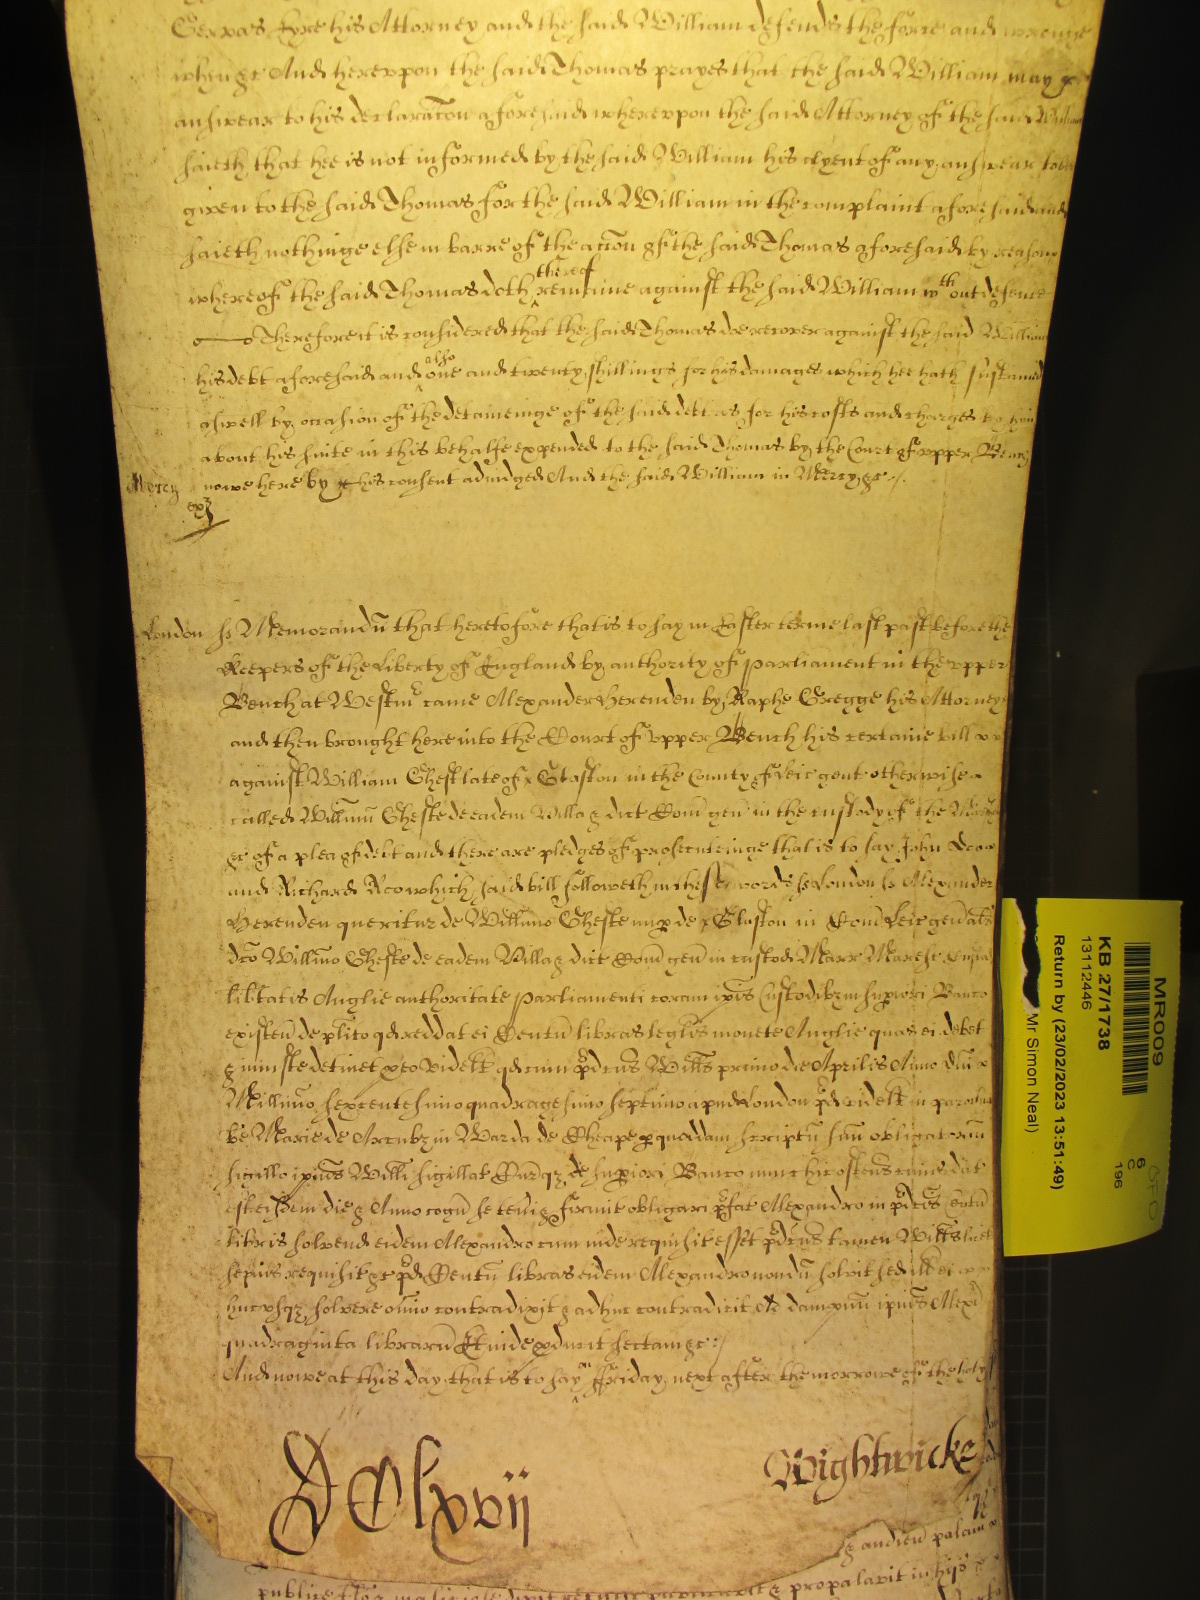 Gervas Eyre his Attorney and the said William defends the force and wronge
when &c And hereuppon the said Thomas prayes that the said William may
answear to his declaratōn aforesaid whereuppon the said Attorney of the said William
saieth that hee is not informed by the said William his clyent of any answear to be
given to the said Thomas for the said William in the complaint aforesaid and
saieth nothinge else in barre of the accōn of the said Thomas aforesaid by reason
whereof the said Thomas doth thereof remaine against the said William wth out defence
Therefore it is considered that the said Thomas doe recover against the said William
his debt aforesaid and also one and twenty shillings for his damages which hee hath sustained
aswell by occasion of the detaineinge of the said debt as for his costs and charges by him
about his suite in this behalfe expended to the said Thomas by the Court of upper Bench
Mercy nowe here by his consent adiudged And the said William in Mercy &c
London ss Memorandū that heretofore that is to say in Easter terme last past before the
Keepers of the Liberty of England by authority of Parliament in the upper
Bench at Westm̄ came Alexander Herenden by Raphe Gregge his Attorney
and then brought here into the Court of upper Bench his certaine bill
against William Gheste late of Glaston in the County of Leic gent otherwise
called Willm̄ū Gheste de eadem Villa & dict Com̄ gen̄ in the custody of the Marshall
&c of a plea of debt and there are pledges of prosecuteinge that is to say John Doo
and Richard Roo which said bill followeth in these words ss London ss Alexander
Herenden queritur de Willm̄o Gheste nup de Glaston in Com̄ Leic gen̄ al's
dc̄o Willm̄o Gheste de eadem Villa & dict Com̄ gen̄ in custod Marr Maresc Custod
lib̄tatis Anglie authoritate Parliamenti coram ip̄is Custodibz in supiori Banco
existen̄ de pl̄ito qd reddat ei Centū libras leglis monete Anglie quas ei debet
& iniuste detinet p eo videlt qd cum p̄dcus Willus primo die Aprilis Anno dn̄i
Millimo sexcentesimo quadragesimo septimo apud London p̄d videlt in parochia
be Marie de Arcubz in Warda de Cheape p quoddam scriptū suū obligatoriū
sigillo ip̄ius Willi sigillat Curqz de supiori Banco nunc hic ostens cuius dat
est eisdem die & Anno cogn̄ se teneri & firmit obligari p̄fat Alexandro in p̄dcis Centū
libris solvend eidem Alexandro cum inde requisit esset p̄dcus tamen Willus licet
sepius requisit &c p̄d Centū libras eidem Alexandro nondū solvit sed ill ei
hucusqz solvere omīo contradixit & adhuc contradicit Ad dampnū ip̄ius Alexi
quadraginta librarū Et inde pducit sectam &c
And nowe at this day that is to say on Friday next after the morrowe of the holy
DClxvij
Wightwicke
& audien palam
publice
propalavit in hijs
MR009
KB 27/1738
13112446
Return by (23/02/2023 13:51:49)
Mr Simon Neal)
6
C
196